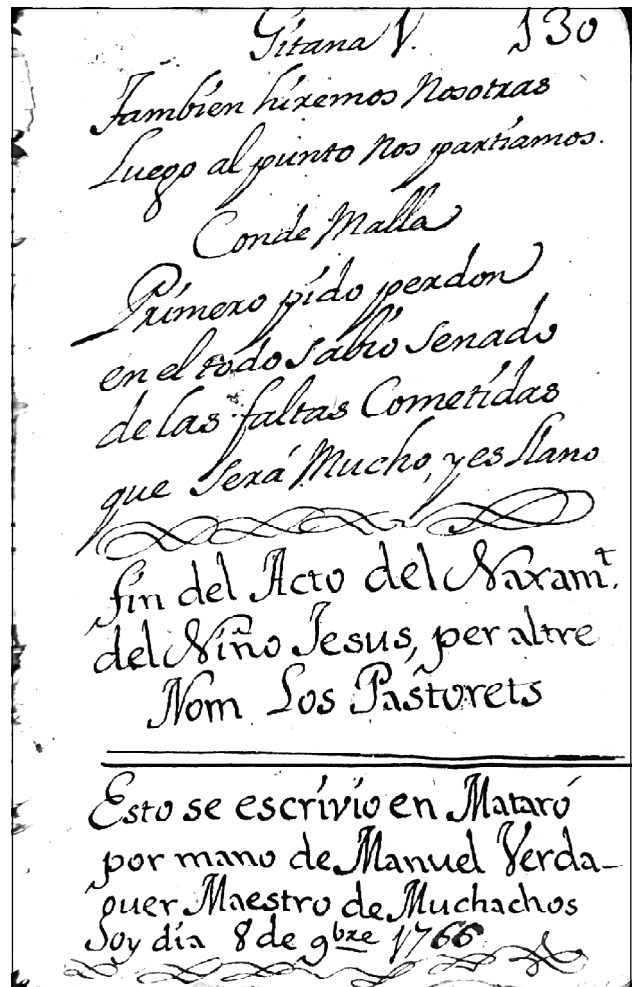 Gitana V. 130
Tambien hiremos Nosotras
Luego al punto nos partiamos.
Conde Malla
Primero pido perdon
en el todo sabio senado
de las faltas Cometidas
que será Mucho, y es llano
fin del Acto del Naxamt.
del Niño Jesus, per altre
Nom Los Pastorets
Esto se escrivio en Mataró
por mano de Manuel Verda-
guer Maestro de Muchachos
Soy dia 8 de 9bre 1766